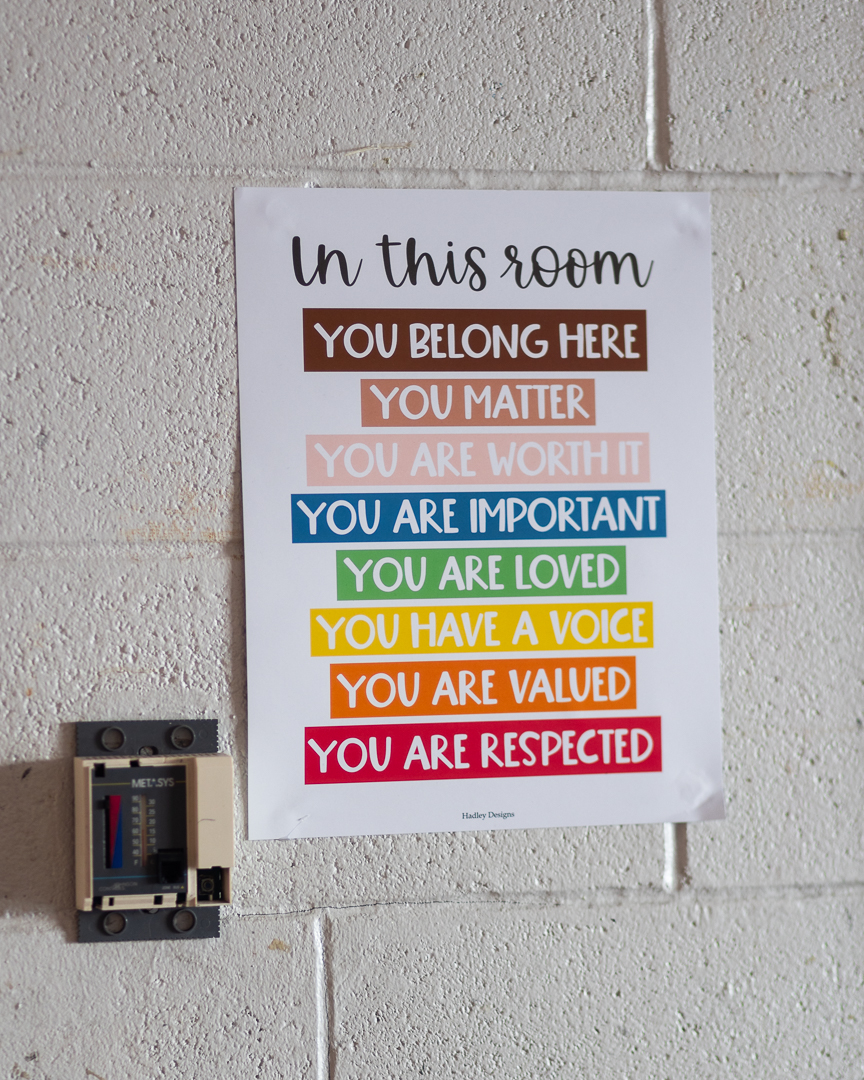 In this room
YOU BELONG HERE
YOU MATTER
YOU ARE WORTH IT
YOU ARE IMPORTANT
YOU ARE LOVED
YOU HAVE A VOICE
YOU ARE VALUED
YOU ARE RESPECTED
Hadley Designs